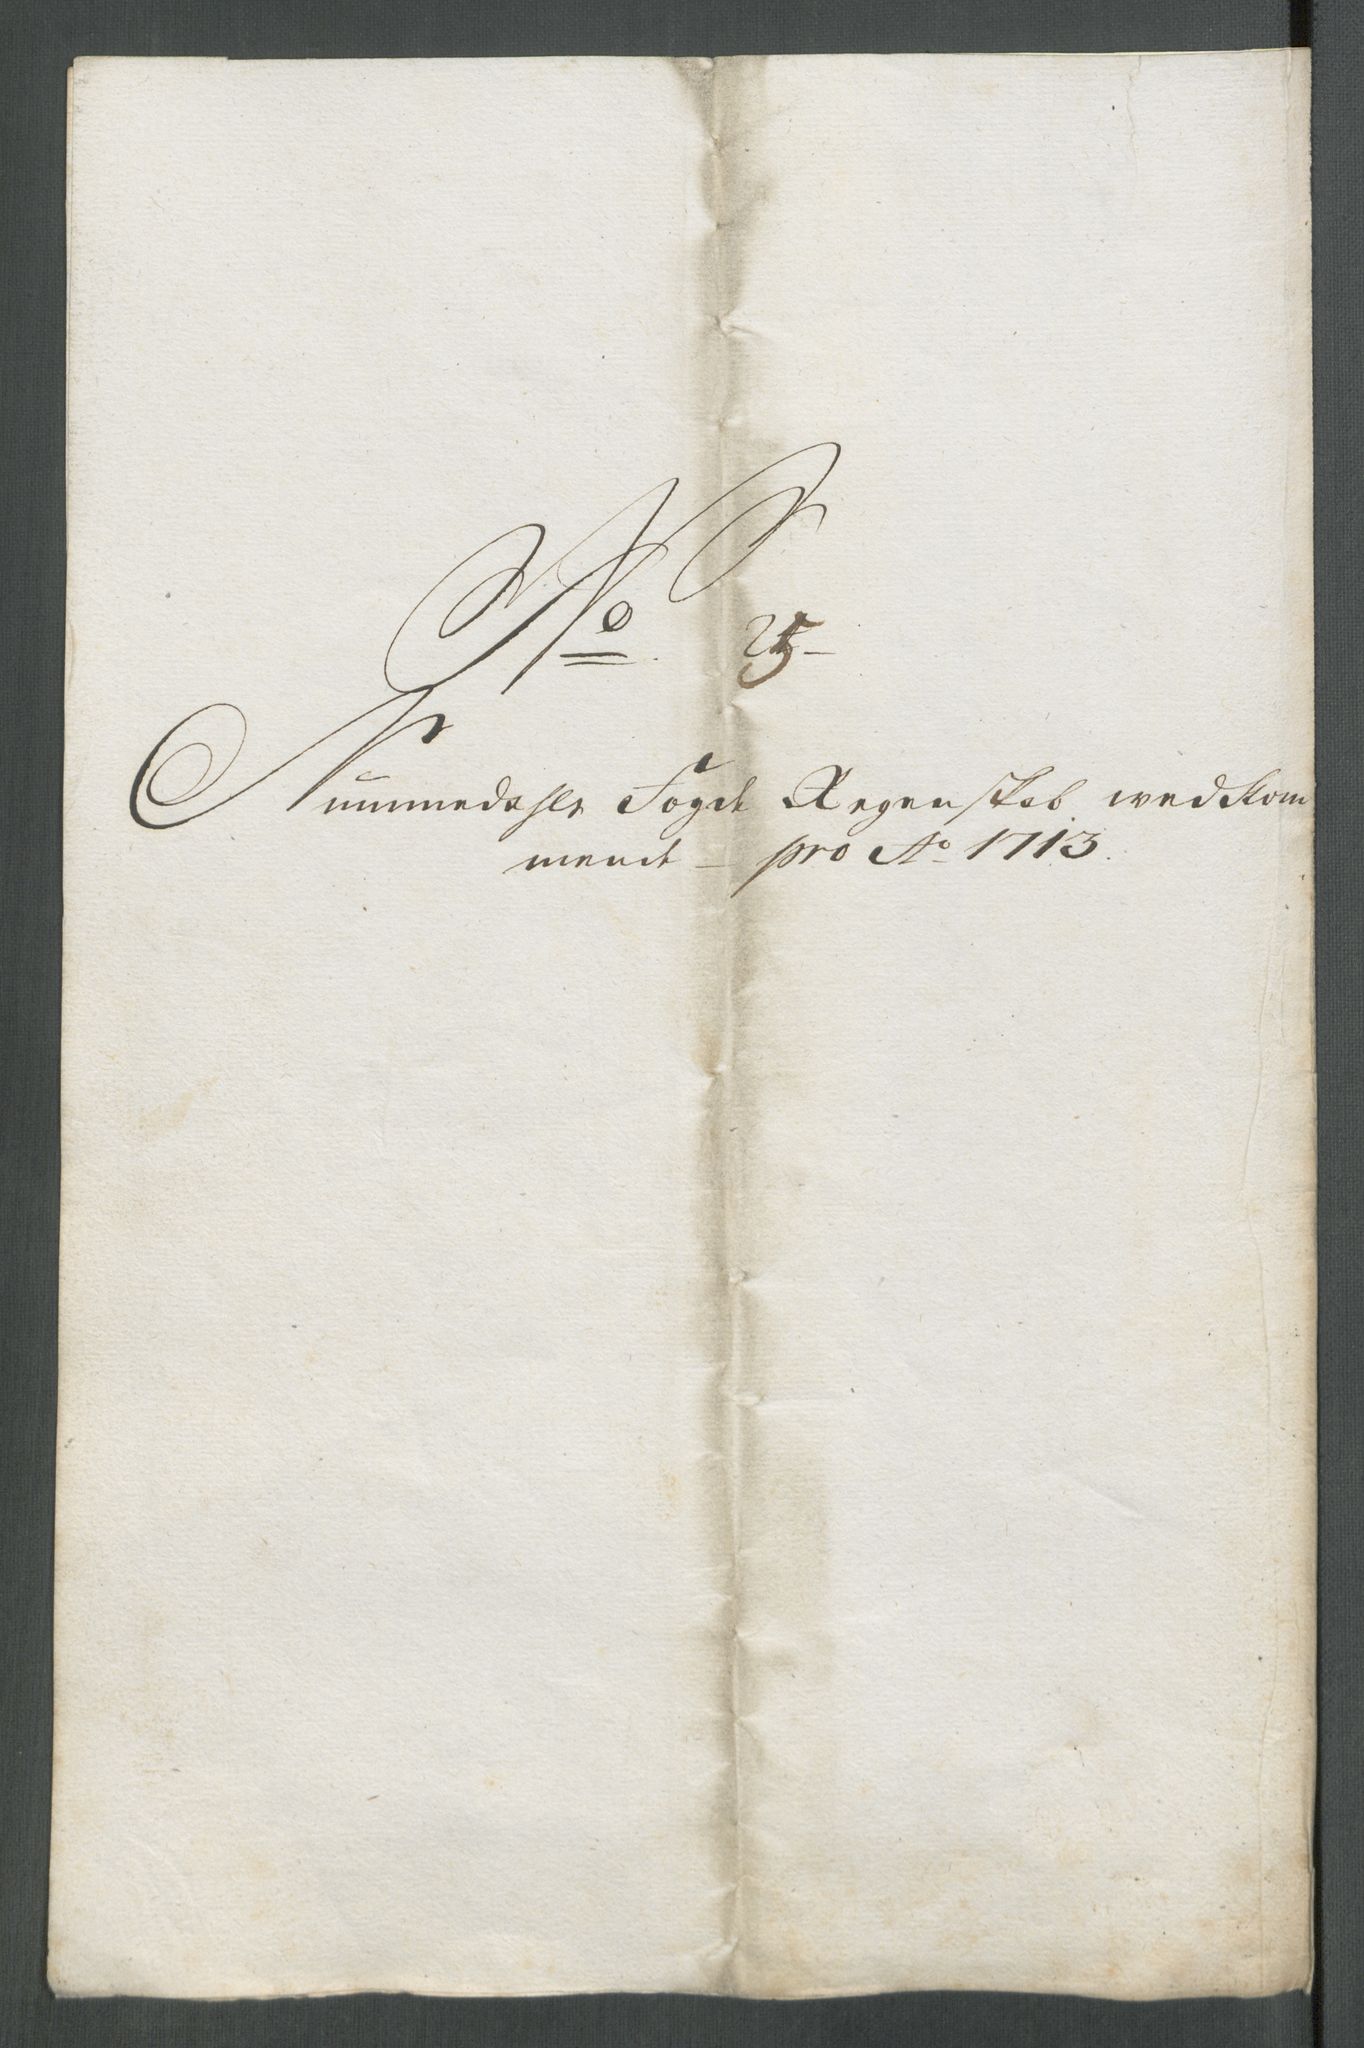 No 25-
Nummedahls Fogde Regenskab wedkom
mende - pro Ao 1713.